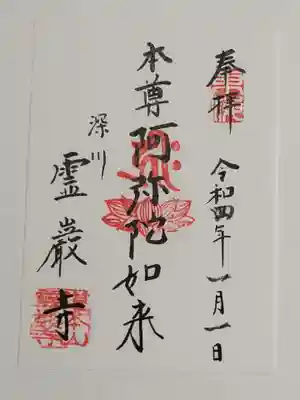 奉拝
令和四年一月一日
本尊阿弥陀如来
深川
霊巌寺